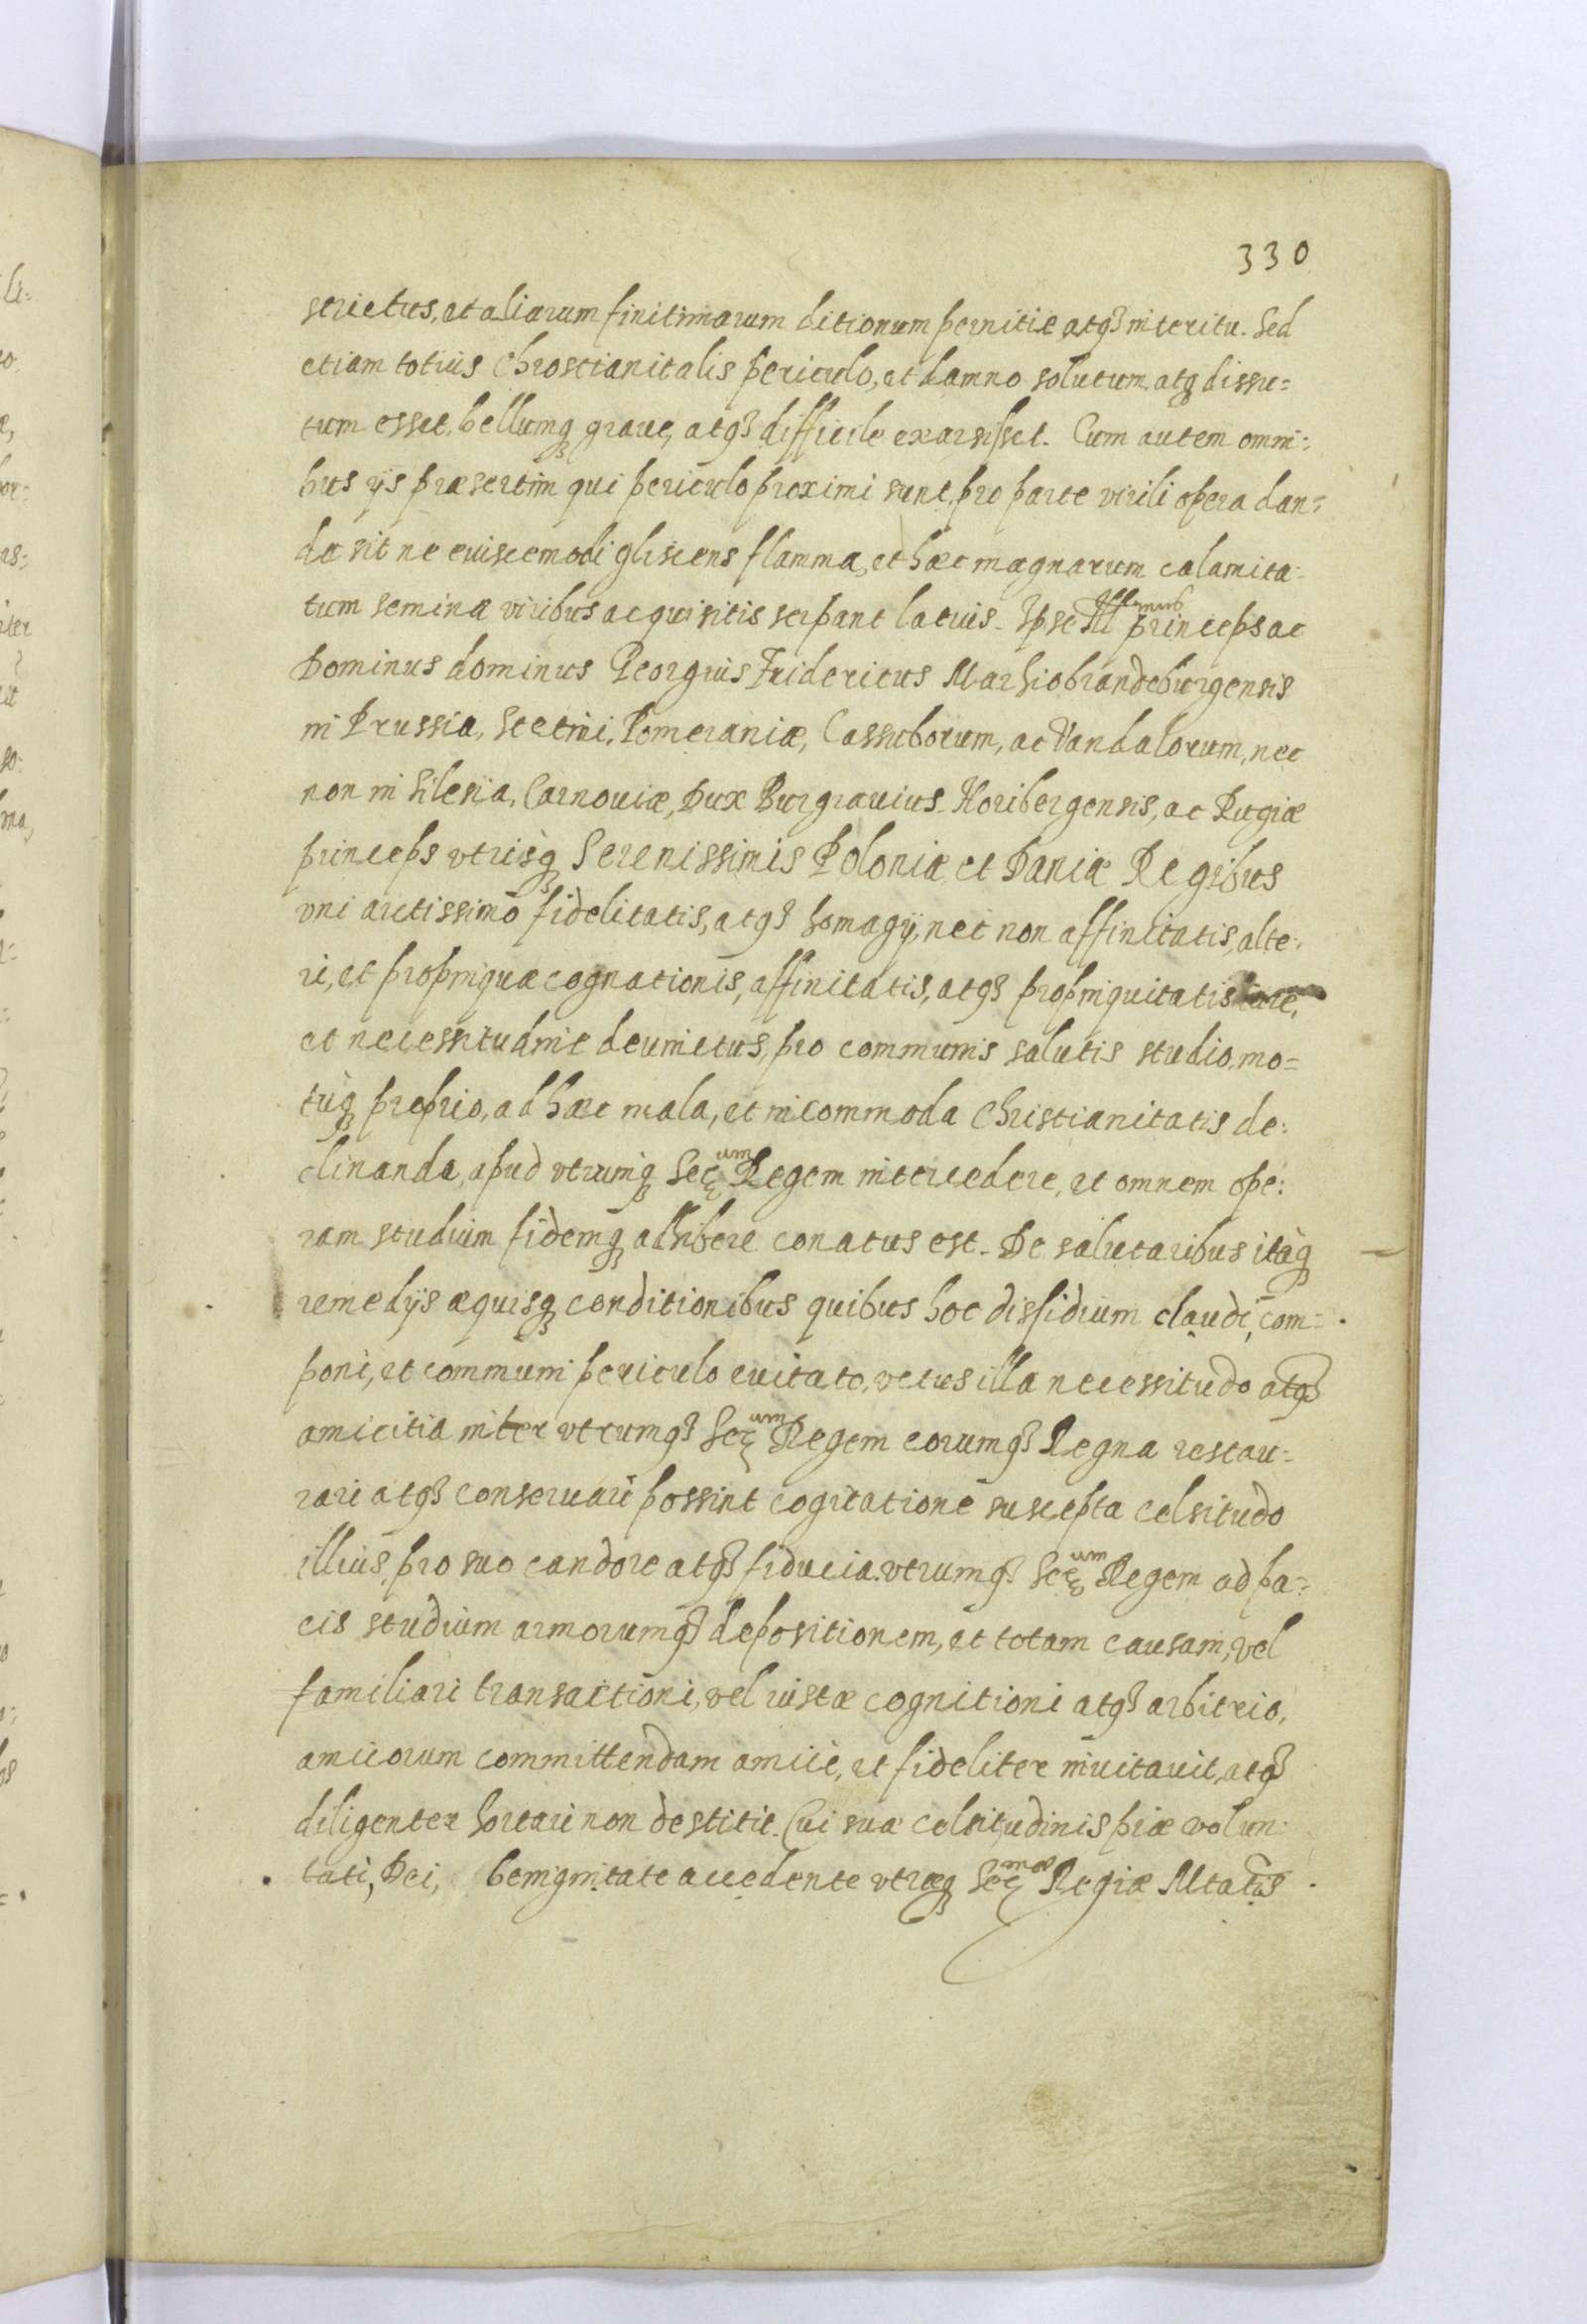 330
strictus, et aliarum finitimarum ditionum pernitie atq₃ interitu. Sed
etiam totius Chrostianitatis periculo, et damno solutum atq₃ dissu=
tum esset, bellumq₃ graue, atq₃ difficile exarsisset. Cum autem omni=
bus ijs præsertim qui periculo proximi sunt, pro parte virili opera dan=
da sit ne euiscemodi gliscens flamma, et hæc magnarum calamita=
tum semina viribus acquisitis serpant latius. Ipse Illmus princeps ac
Dominus dominus Georgius Fridericus Marhio brandeburgensis
in Prussia, Stetini, Pomeraniæ, Cassuborum, ac Vandalorum, nec
non in Silesia, Carnouiæ, Dux Burgrauius Noribergensis, ac Rugiæ
princeps vtrisq₃ Serenissimis Poloniæ et Daniæ Regibus
vni arctissimo fidelitatis, atq₃ homagij, nec non affinitatis, alte=
ri, et propinquæ cognationis, affinitatis, atq₃ propinquitatis iure,
et necessitudine deuinctus, pro communis salutis studio, mo=
tuq₃ proprio, ad hæc mala, et incommoda Christianitatis de=
clinanda, apud vtrumq₃ Seʳᵘᵐ Regem intercedere, et omnem ope=
ram studium fidemq₃ adhibere conatus est. De salutaribus itaq₃
remedijs æquisq₃ conditionibus quibus hoc dissidium claudi, com=
poni, et communi periculo euitato, vetus illa necessitudo atq₃
amicitia inter vtrumq₃ Seʳᵘᵐ Regem eorumq₃ Regna restau=
rari atq₃ conseruari possint cogitatione suscepta Celsitudo
illius, pro suo candore atq₃ fiducia vtrumq₃ Seʳᵘᵐ Regem ad pa=
cis studium armorumq₃ depositionem, et totam causam, vel
familiari transactioni, vel iustæ cognitioni atq₃ arbitrio,
amicorum committendam amice, et fideliter inuitauit, atq₃
diligenter hortari non destitit. Cui suæ celsitudinis piæ volun=
tati, Dei, benignitate accedente vtræq₃ Seʳ Regiæ Mtatis